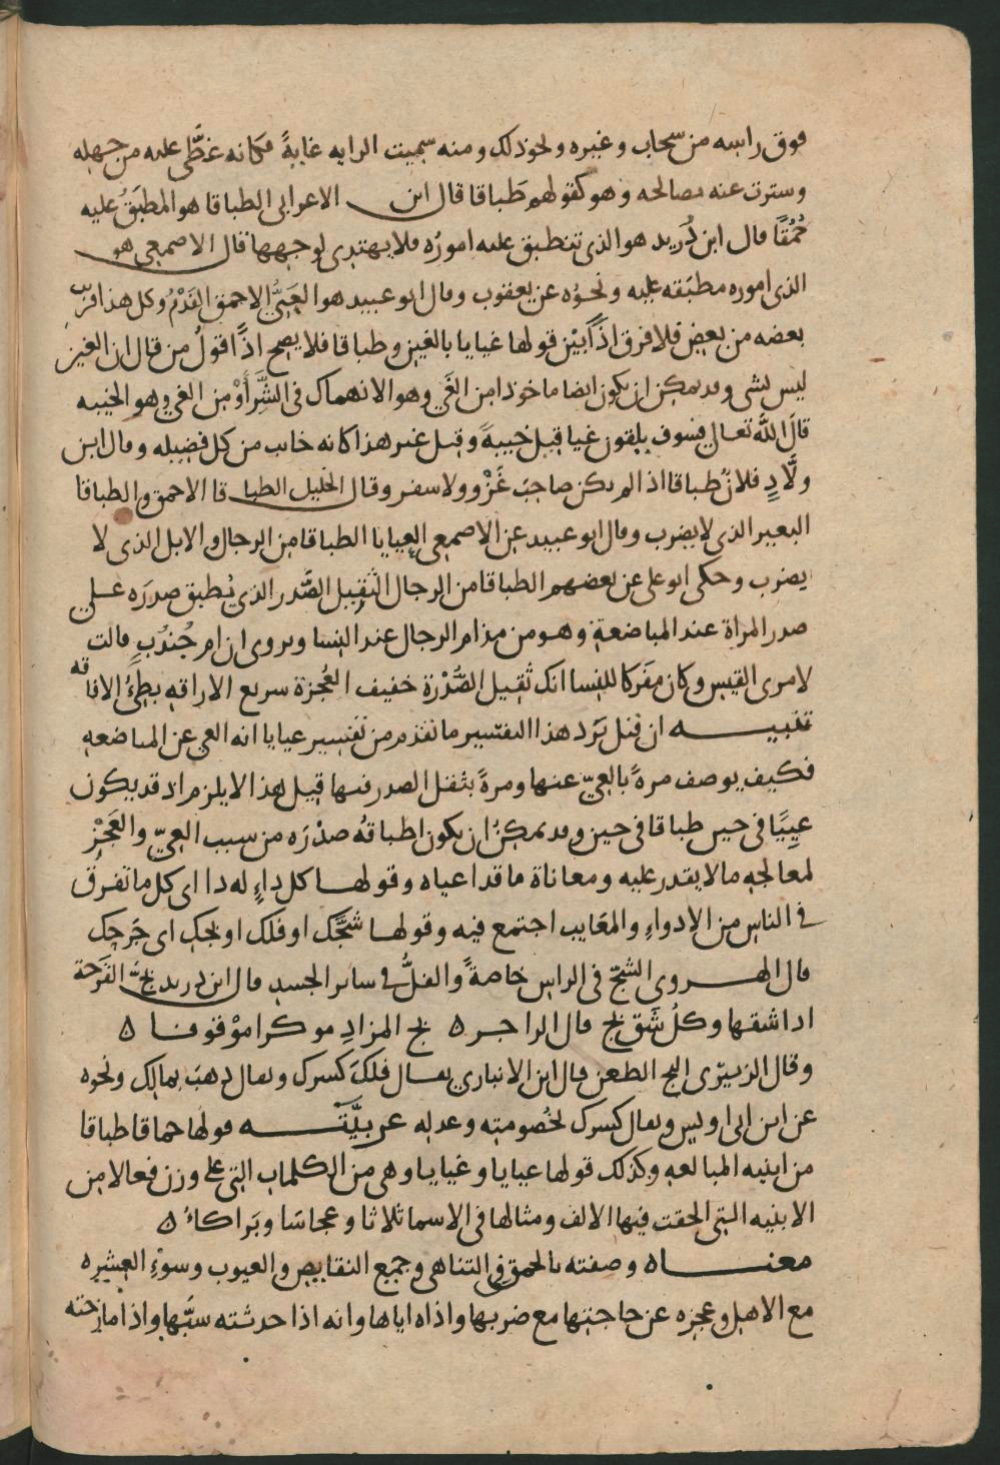 فوق راسه من سحاب وغبره ونحو ذلك ومنه سميت الرايه غايةً فكانه غطّى عليه من جهله
وسترت عنه مصالحه وهو كقولهم طَباقا قال ابن الاعرابى الطباقا هو المطبَقُ عليه
حُمُقًا قال ابن دُريد هو الذى تنطبق عليه امورُه فلا يهتدى لوجهها قال الاصمعى هو
الذى اموره مطبَقه عليه ونحوُه عن يعقوب وقال ابو عبيد هو العَيِىُّ الاحمق الفَدْمُ وكل هذا قريب
بعضه من بعض فلا فرق اذًا بيْن قولها غيايا بالغين وطباقا فلا يصح اذًا قولُ من قال ان الغين
ليس بشى وقد يمكن ان يكون ايضا ماخوذا من الغَىّ وهو الانهماك فى الشَّرّ أوْ من الغى وهو الخيبه
قال الله تعالى فسوف يلقون غيا قيل خيبةً وقيل غير هذا كانه خاب من كل فضيله وقال ابن
ولَّادٍ فلانٌ طباقا اذا لم يكن صاحبَ غَزْو ولا سفر وقال الخليل الطباقا الاحمق والطباقا
البعير الذى لا يضرب وقال ابو عبيد عن الاصمعى العيايا الطباقا من الرجال والابل الذى لا
يضرب وحكى ابو على عن بعضهم الطباقا من الرجال الثقيل الصَّدر الذى يُطبق صدرَه على
صدر المراة عند المباضعة وهو من مذام الرجال عند النسا ويروى ان ام جُندُبٍ قالت
لامرى القيس وكان مفَركا للنسا انك ثقيل الصَّدْرة خفيف العُجزة سريع الاراقه بطئُ الافاقه
تنبيه ان قيل يَرَد هذا التفسير ما تقدم من تفسير عيايا انه العى عن المباضعه
فكيف يوصف مرةً بالعِىّ عنها ومرةً بثقل الصدر فيها قيل هذا لا يلزم اذ قد يكون
عيِيًا فى حين طباقا فى حين وقد يمكنُ ان يكون اطباقهُ صدْرَه من سبب العِىّ والعَجْزِ
لمعالجه ما لا يقدر عليه ومعاناة ما قد اعياه وقولها كل داءٍ له دا اى كل ما تفرق
فى الناس من الادواءِ والمعَايب اجتمع فيه وقولها شَجَّك او فلك او بجك اى جَرحك
قال الهروى الشجّ فى الراس خاصةً والفلُّ فى ساير الجسد قال ابن دريد بجَّ القَرحة
اذا شقها وكلُ شَق بج قال الراجز ه بج المزادِ موكرا موْفوفا ه
وقال الزبيرى البج الطعن قال ابن الانبارى يقال فلكَ كسرك ويقال ذهبَ بمالك ونحوه
عن ابن ابى اويس ويقال كسرك لخُصومته وعدله عربيَّتَه قولها حماقا طباقا
من ابنيه المبالغه وكذلك قولها عيايا وغيايا وهى من الكلمات التى على وزن فعالا من
الابنيه التى الحقت فيها الالف ومثالها فى الاسما ثلاثا وعجاسَا وبَراكاءُ ه
معناه وصفته بالحمق والتناهى وجميع النقايص والعيوب وسوْءِ العِشيره
مع الاهل وعجزه عن حاجتها مع ضربها واذاه اياها وانه اذا حدثته سَبّها واذا مازحَته